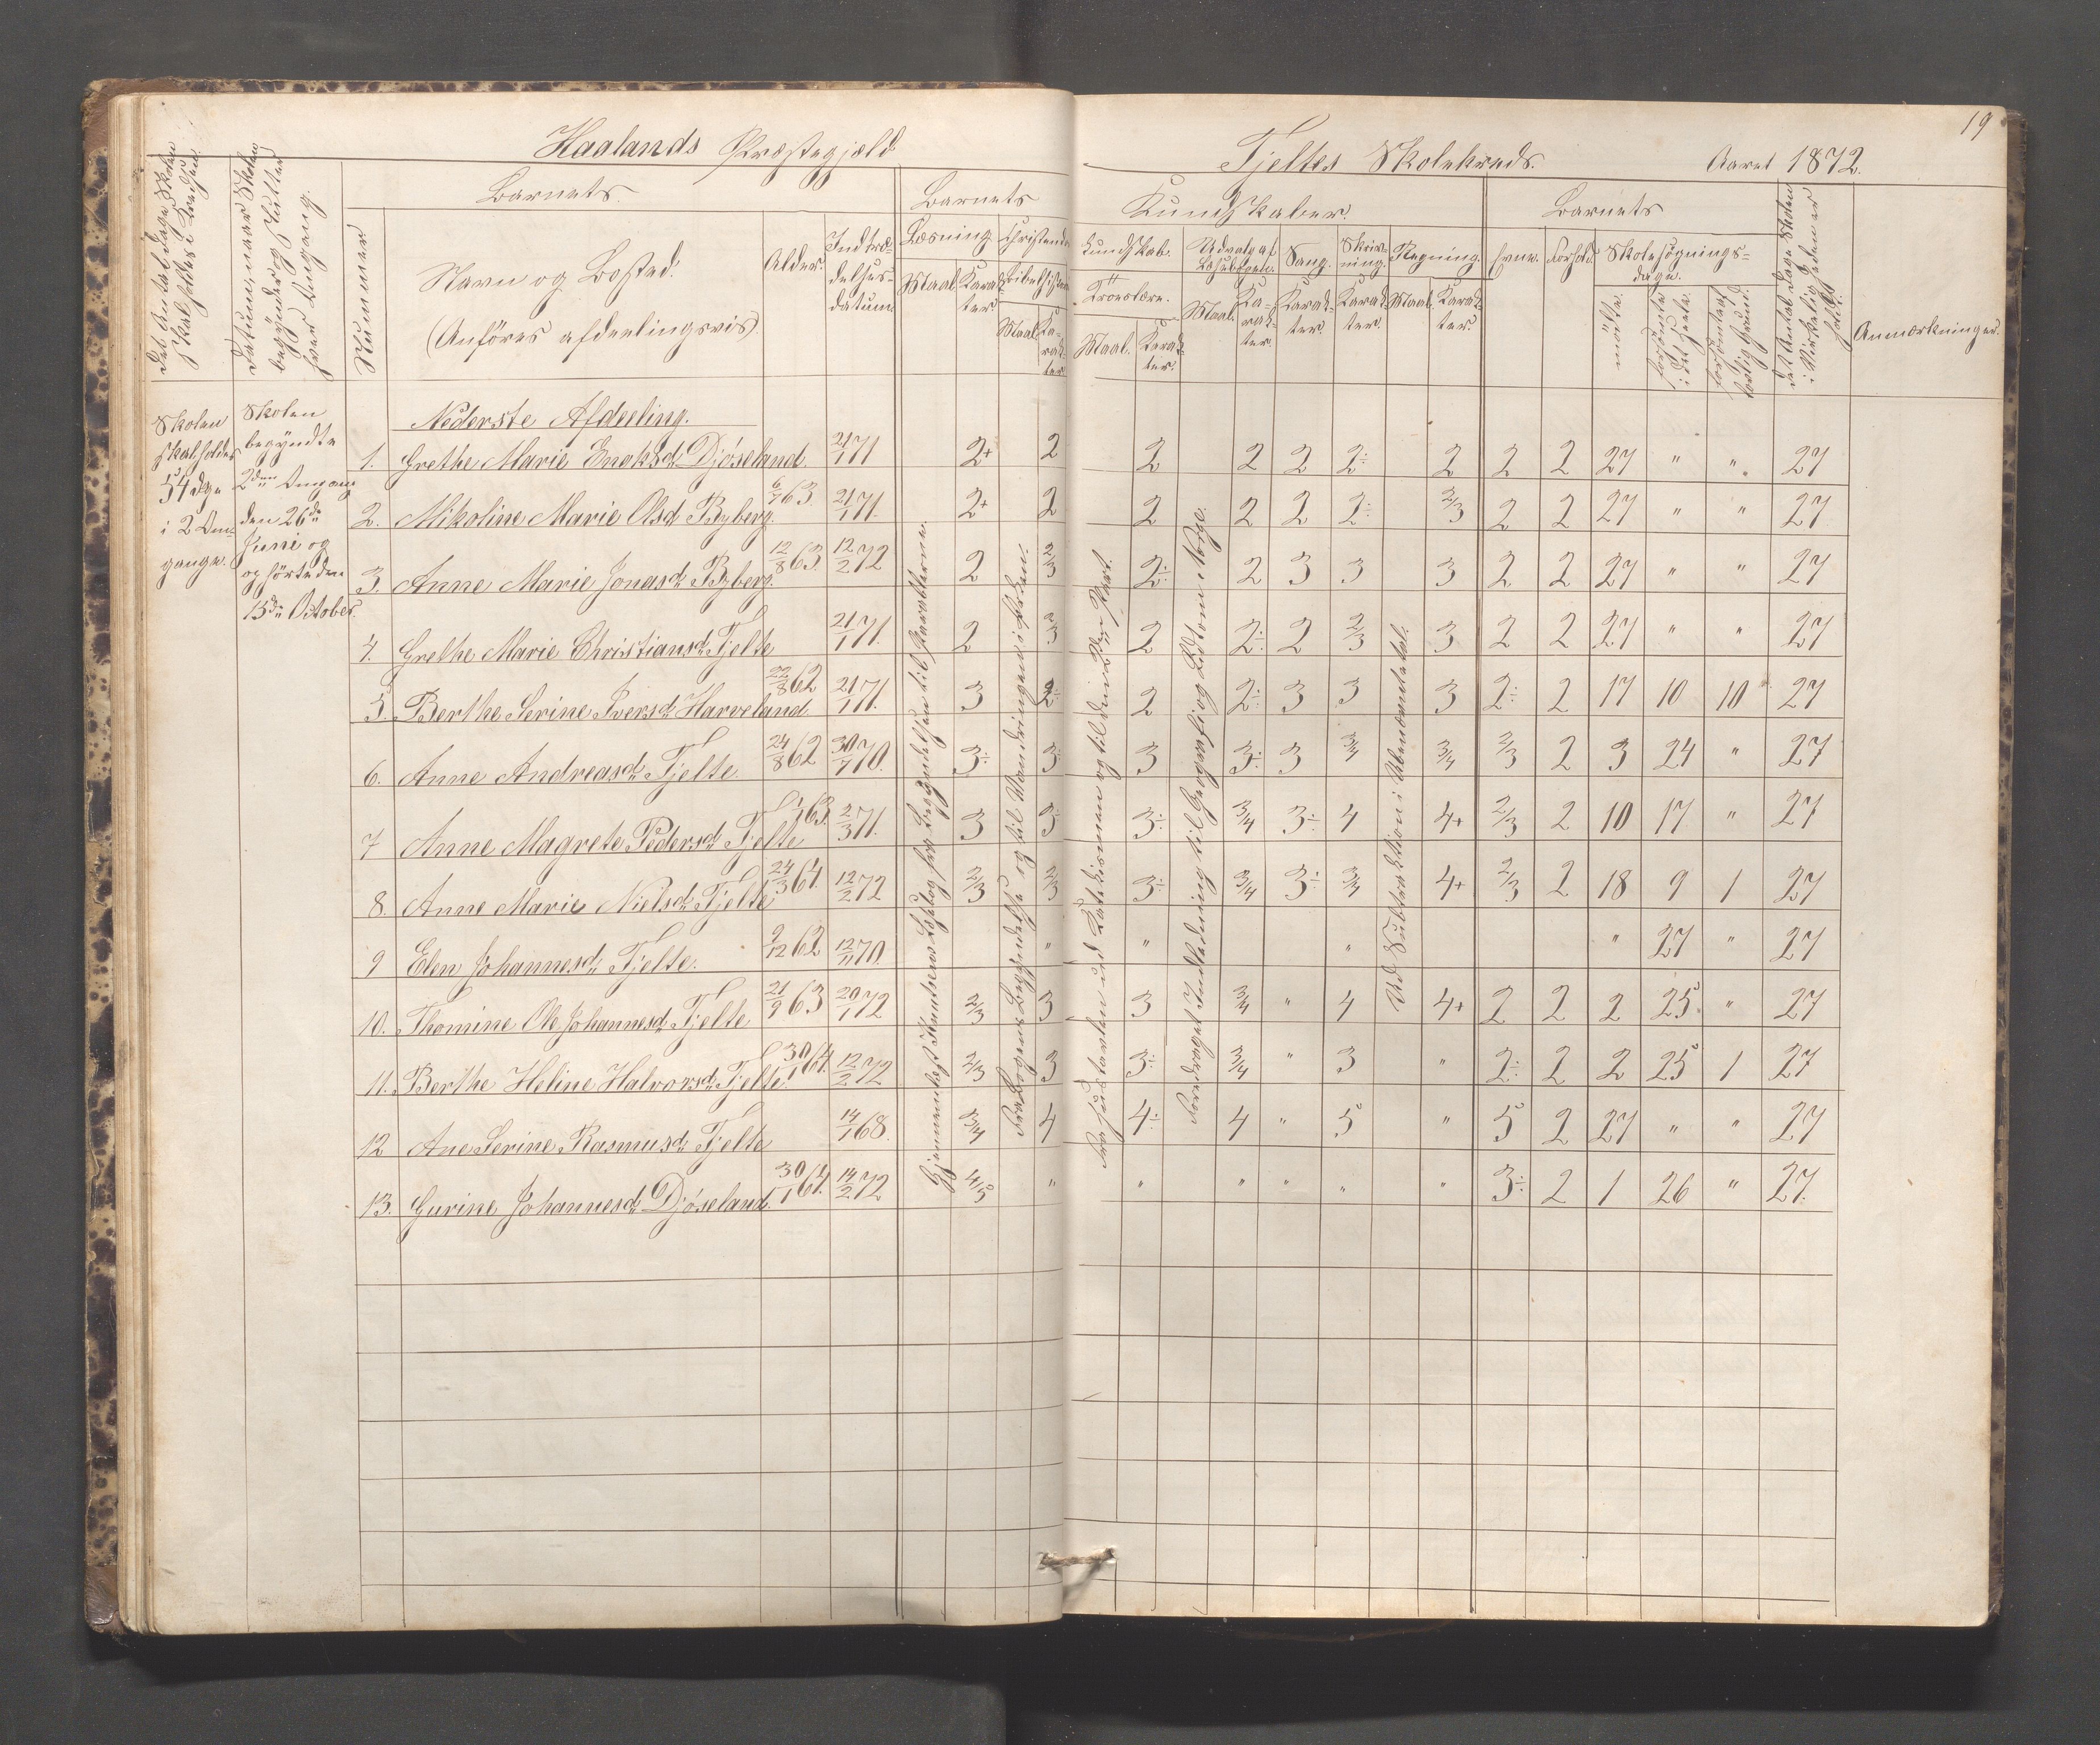 19
Haalands Præstegjæld
Tjeltes Skolekreds. Aaret 1872.
Det Antal Dage Skolen skal holdes i Kredsen.
Datum, naar Skolen begynder og slutter hver Omgang.
Nummer
Barnets
Navn og Bosted.
(Anføres afdeelingsvis).
Alder.
Indtrædelses-datum
Barnets
Kundskaber.
Læsning
Maal.
Karakter.
Christendoms
Kundskab.
Bibelhistorie
Maal.
Karakter.
Troeslære.
Maal.
Karakter.
Udvalg af Læsebogen.
Maal.
Karakter.
Sang.
Karakter.
Skrivning.
Karakter.
Regning.
Maal.
Karakter.
Barnets
Evne.
Forhold.
Skolesøgningsdage.
mødte.
forsømte i det Hele.
forsømte af lovlig Grund.
Det Antal Dage Skolen i Virkeligheden er holdt.
Anmærkninger.
Skolen
skal holdes
54 Dge
i 2 Om-
gange.
Skolen
begyndte
2den Omgang
den 26de
Juni og
ophørte den
15de October.
Nederste Afdeeling.
1. Grethe Marie Enoksd. Djøseland. 21/1 71 2+ 2 2 2 2 2÷ 2 2 2 27 " " 27
2. Nikoline Marie Olsd. Byberg. 6/7 63. 21/1 71. 2+ 2 2 2 2 2÷ 2/3 2 2 27 " " 27
3. Anne Marie Jonasd. Byberg. 12/8 63. 12/2 72 2 2/3 2÷ 2 3 3 3 2 2 27 " " 27
4. Grethe Marie Christiansd. Tjelte 21/1 71. 2 2/3 2 2÷ 2 2/3 3 2 2 27 " " 27
5. Berthe Serine Iversd. Harveland 22/8 62 21/1 71. 3 2÷ 2 2÷ 3 3 3 2÷ 2 17 10 10 27
6. Anne Andreasd. Tjelte. 24/8 62 30/7 70. 3÷ 3÷ 3 3÷ 3 3/4 3/4 2/3 2 3 24 " 27
7 Anne Magrete Pedersd. Tjelte 63. 2/3 71. 3 3÷ 3÷ 3/4 3÷ 4 4+ 2/3 2 10 17 " 27
8. Anne Marie Nielsd. Tjelte 24/3 64. 12/2 72 2/3 2/3 3÷ 3/4 3÷ 3/4 4+ 2/3 2 18 9 1 27
9 Elen Johannesd. Tjelte. 9/12 62 12/11 70. " " " " 27 " 27
10. Thomine Ole Johannesd. Tjelte 21/9 63 20/1 72 2/3 3 3 3/4 " 4 4+ 2 2 2 25 " 27
11. Berthe Heline Halvorsd. Tjelte. 30/1 64. 12/2 72 2/3 3 3÷ 3/4 " 3 " 2÷ 2 2 25 1 27
12 Ane Serine Rasmusd. Tjelte 14/1 68. 3/4 4 4÷ 4 " 5 " 5 2 27 " " 27
13. Gurine Johannesd. Djøseland. 30/1 64. 14/2 72 4/5 " " " " " " 3÷ 2 1 26 " 27.
Ud Subtraktion i Ubenævnte tal.